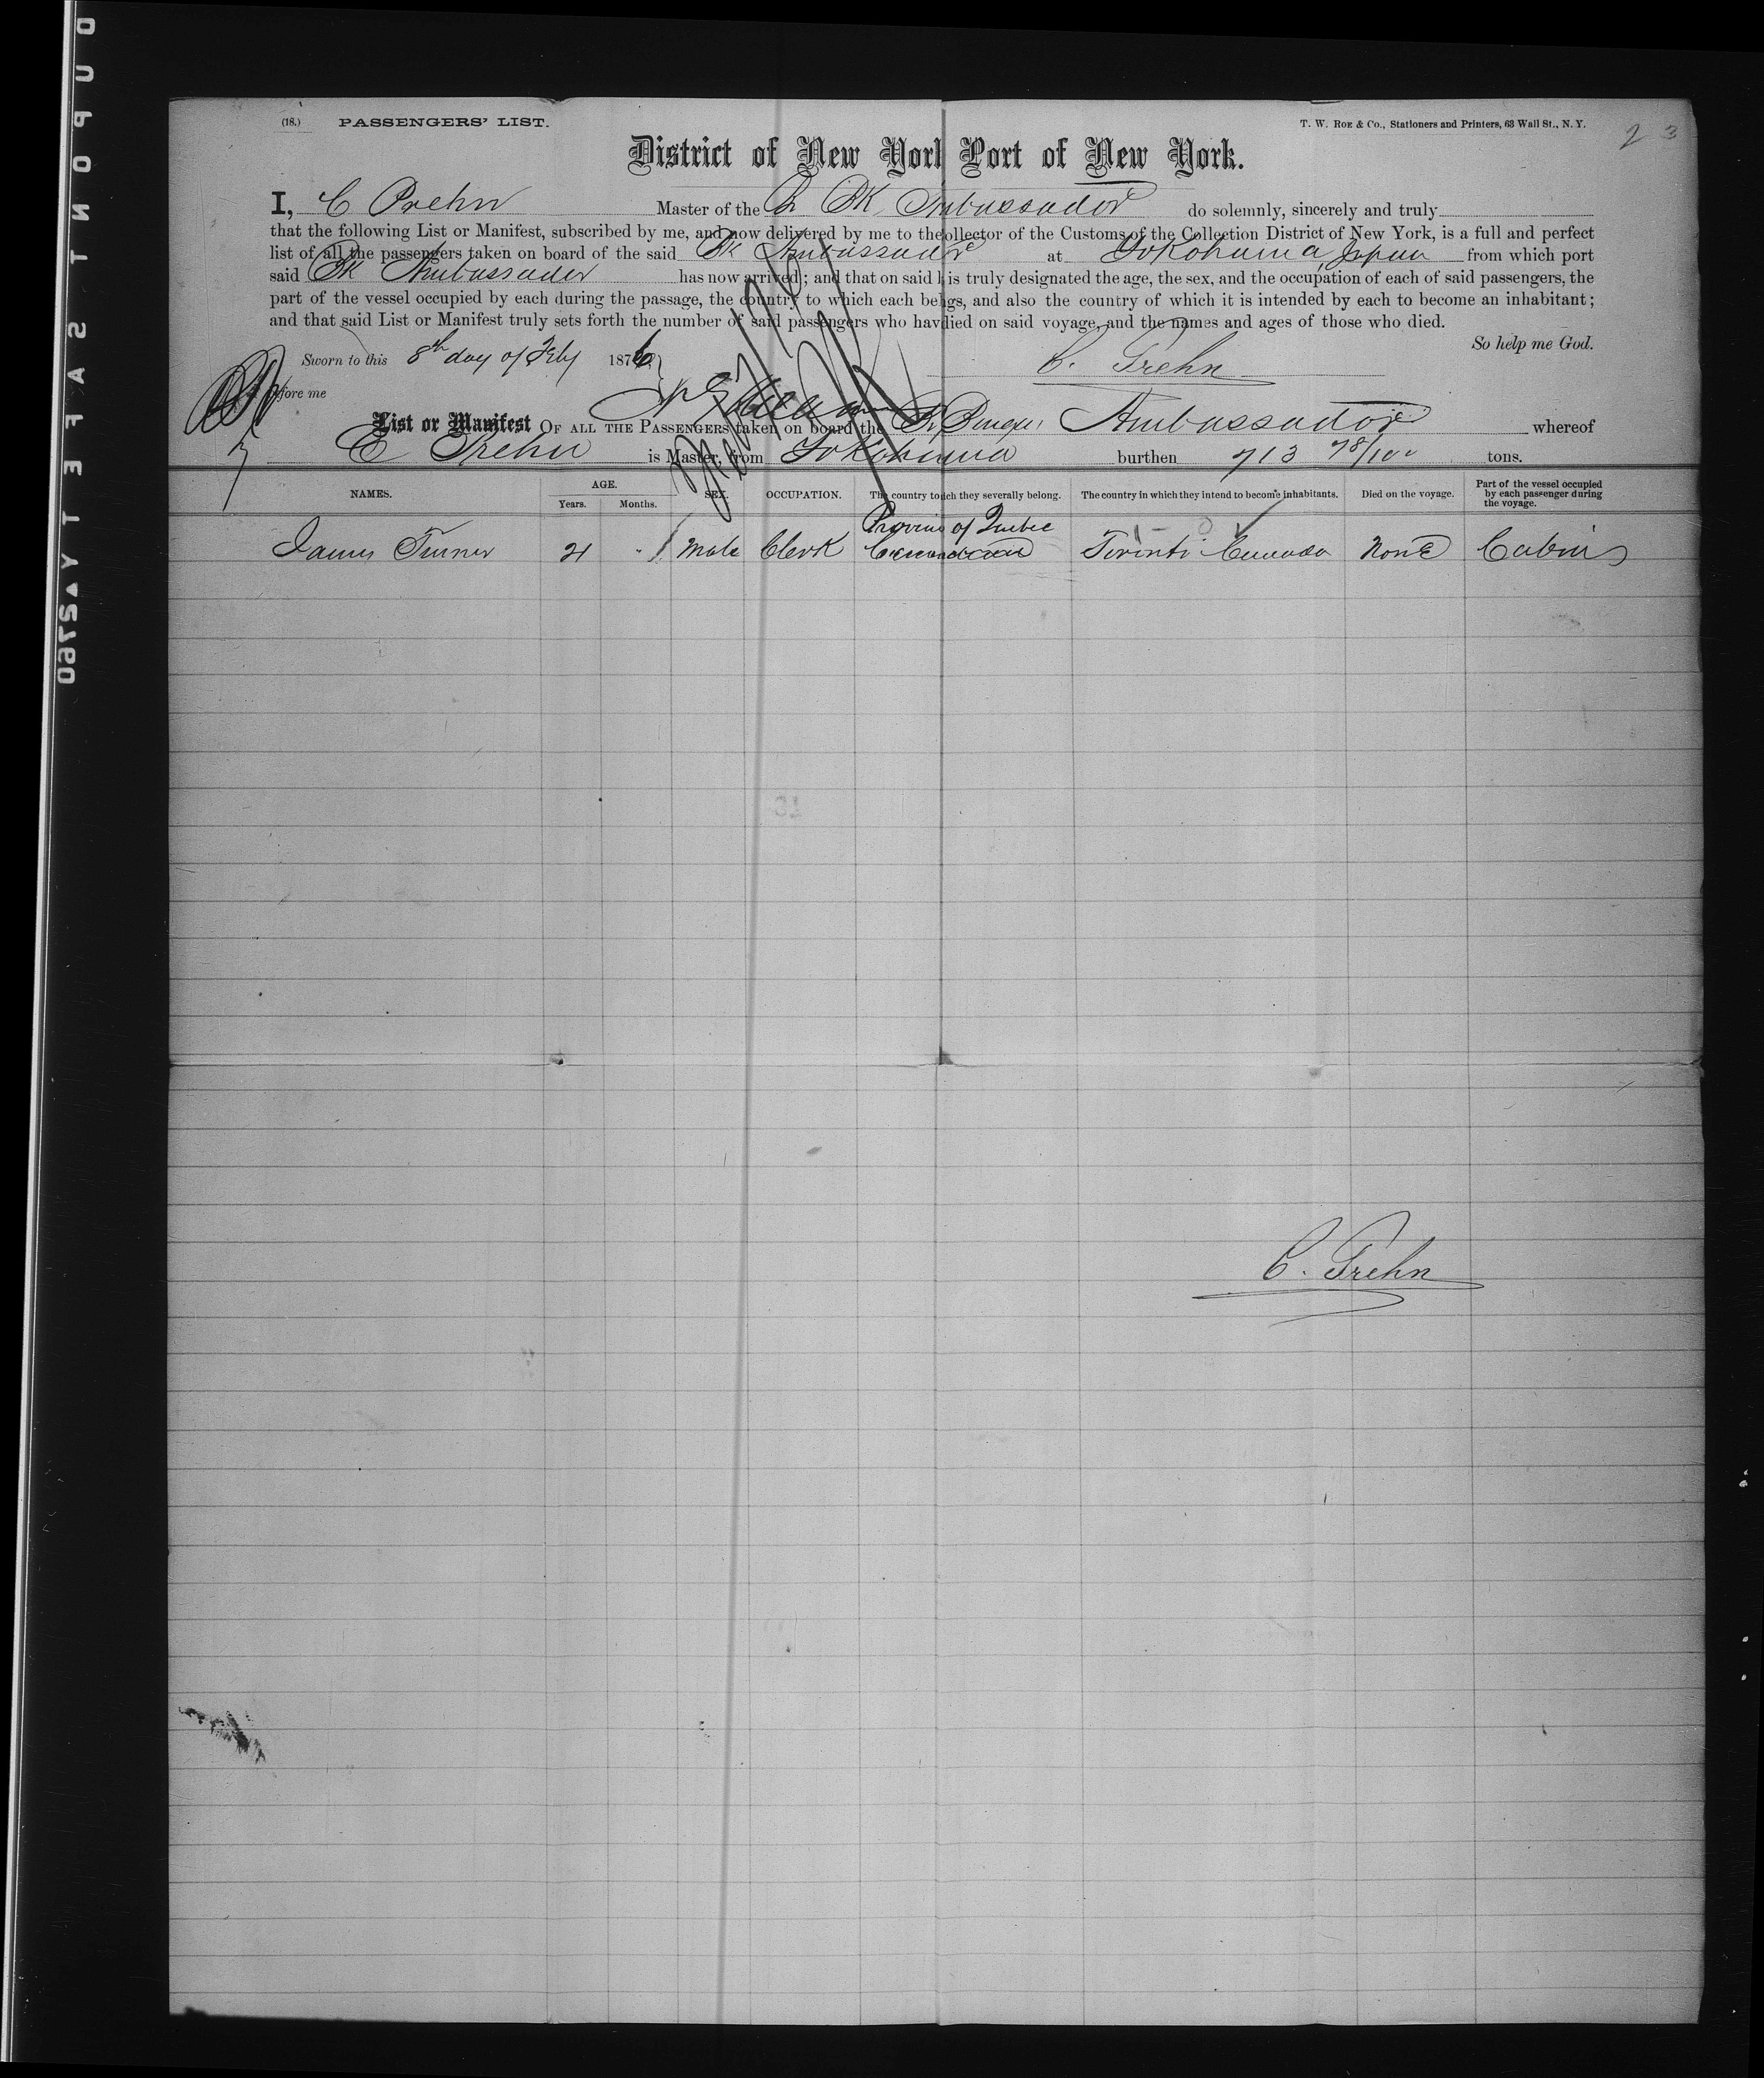 (18.) PASSENGERS' LIST. T. W. ROE & Co., Stationers and Printers, 63 Wall St., N. Y. 23
District of New York Port of New York.
I, C Prehn Master of the Br Bk Ambassador do solemnly, sincerely and truly
that the following List or Manifest, subscribed by me, and now delivered by me to the ollector of the Customs of the Collection District of New York, is a full and perfect
list of all the passengers taken on board of the said Bk Ambassador at Yokohama, Japan from which port
said Bk Ambassador has now arrived; and that on said is truly designated the age, the sex, and the occupation of each of said passengers, the
part of the vessel occupied by each during the passage, the country to which each be gs, and also the country of which it is intended by each to become an inhabitant;
and that said List or Manifest truly sets forth the number of said passengers who hav died on said voyage, and the names and ages of those who died.
So help me God.
Sworn to this 8th day of Feby 1876 C. Prehn
before me
List or Manifest OF ALL THE PASSENGERS taken on board the Ambassador whereof
C Prehn is Master, from Yokohama burthen 713 78/100 tons.
NAMES. AGE. Years. Months. SEX. OCCUPATION. The country to ch they severally belong. The country in which they intend to become inhabitants. Died on the voyage. Part of the vessel occupied by each passenger during the voyage.
Province of Quebec
James Turner 21 " Male Clerk Canadian Toronto Canada None Cabin
C. Prehn
DUPONT SAFETY